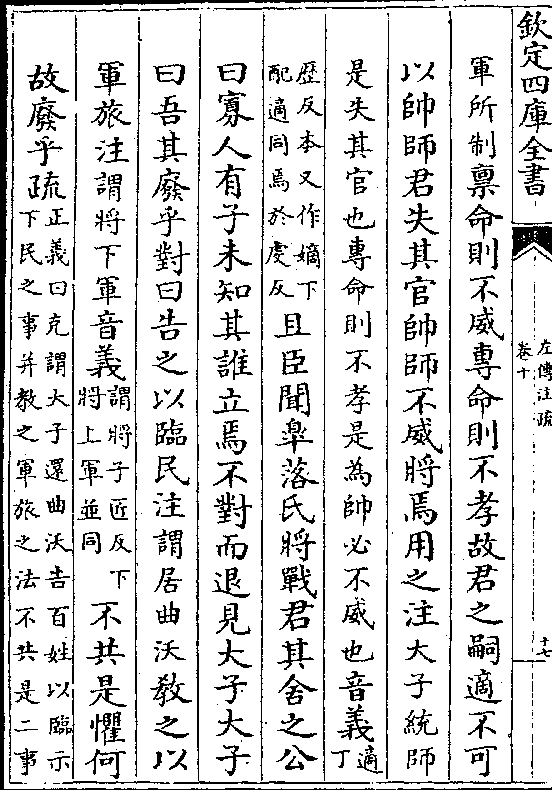 欽定四庫全書
左傳注疏
卷十
十七
軍所制稟命則不威專命則不孝故君之嗣適不可
以帥師君失其官帥師不威將焉用之注大子統師
是失其官也專命則不孝是為帥必不威也音義適丁
歴反本又作嫡下
配適同焉於虔反
且臣聞臯落氏將戰君其舍之公
曰寡人有子未知其誰立焉不對而退見大子大子
曰吾其廢乎對曰告之以臨民注謂居曲沃教之以
軍旅注謂將下軍音義
謂將子匠反下
將上軍並同
不共是懼何
故廢乎疏
正義曰充謂大子還曲沃吉百姓以臨示
下民之事并教之軍旅之法不共是二事